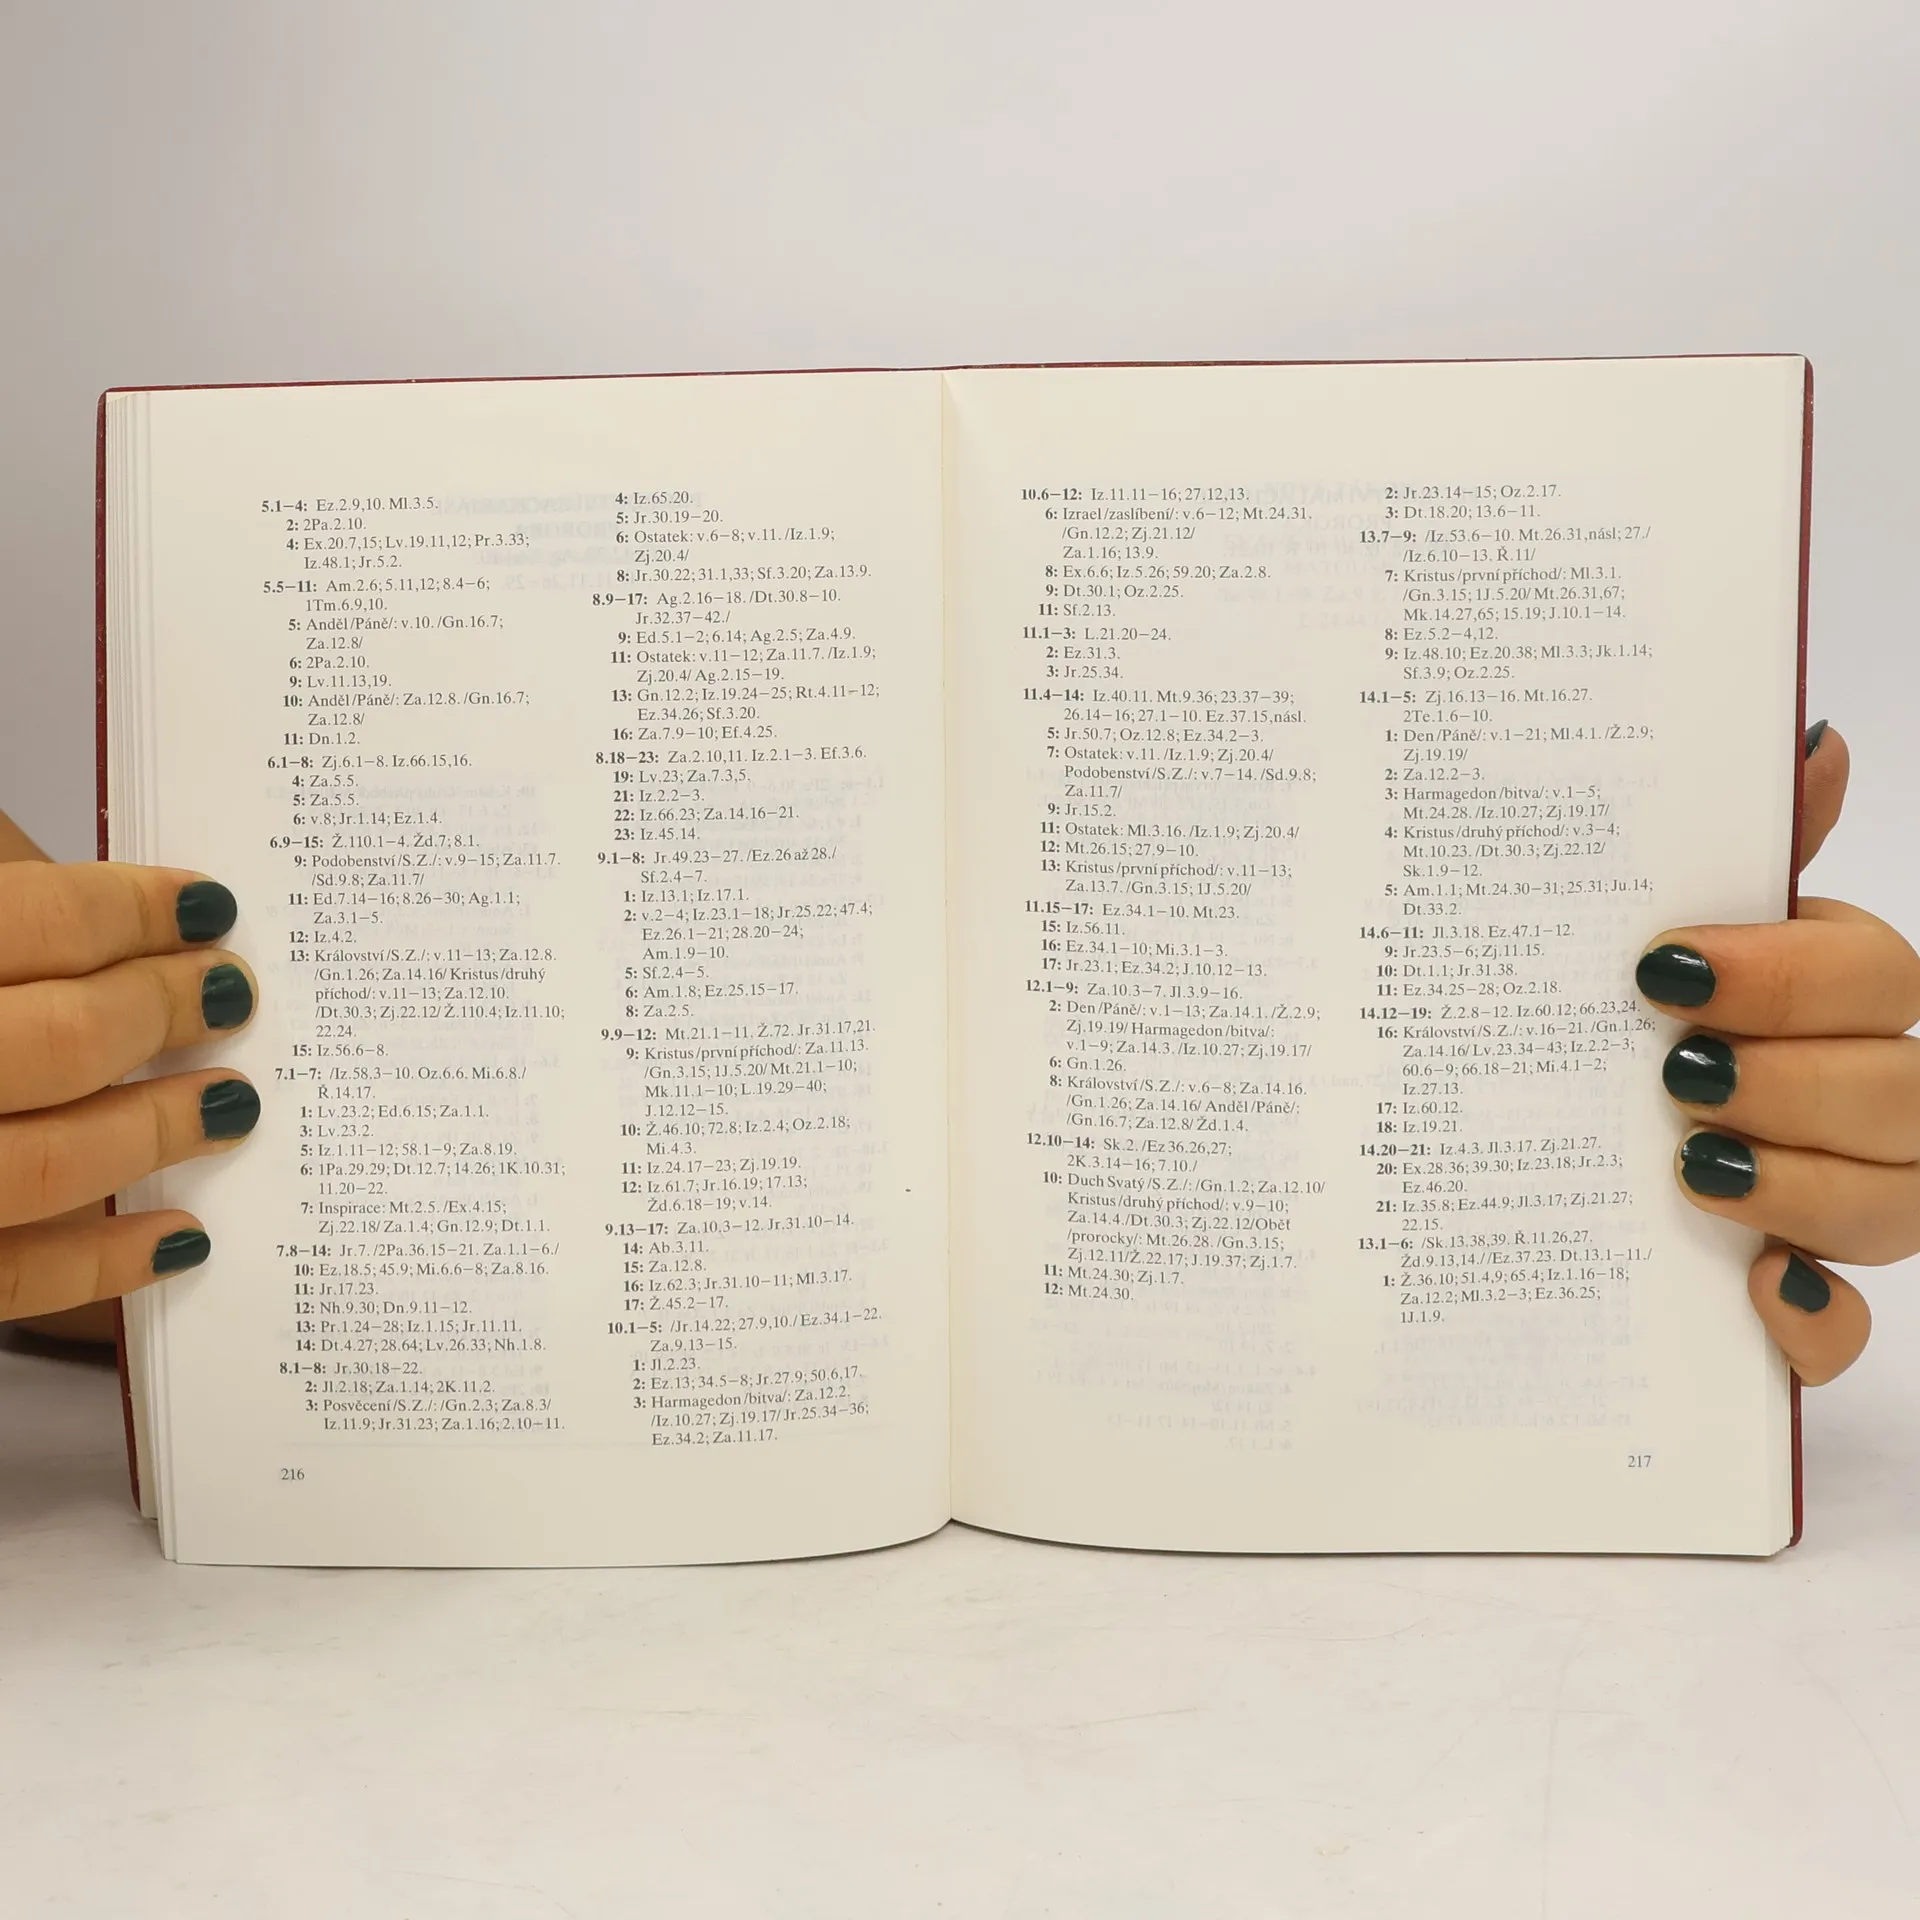 5.1–4: Ez.2.9,10. Ml.3.5.
2: 2Pa.2.10.
4: Ex.20.7,15; Lv.19.11,12; Pr.3.33;
Iz.48.1; Jr.5.2.
5.5–11: Am.2.6; 5.11,12; 8.4–6;
1Tm.6.9,10.
5: Anděl /Páně/: v.10. /Gn.16.7;
Za.12.8/
6: 2Pa.2.10.
9: Lv.11.13,19.
10: Anděl /Páně/: Za.12.8. /Gn.16.7;
Za.12.8/
11: Dn.1.2.
6.1–8: Zj.6.1–8. Iz.66.15,16.
4: Za.5.5.
5: Za.5.5.
6: v.8; Jr.1.14; Ez.1.4.
6.9–15: Ž.110.1–4. Žd.7; 8.1.
9: Podobenství /S.Z./: v.9–15; Za.11.7.
/Sd.9.8; Za.11.7/
11: Ed.7.14–16; 8.26–30; Ag.1.1;
Za.3.1–5.
12: Iz.4.2.
13: Království /S.Z./: v.11–13; Za.12.8.
/Gn.1.26; Za.14.16/ Kristus /druhý
příchod/: v.11–13; Za.12.10.
/Dt.30.3; Zj.22.12/ Ž.110.4; Iz.11.10;
22.24.
15: Iz.56.6–8.
7.1–7: /Iz.58.3–10. Oz.6.6. Mi.6.8./
Ř.14.17.
1: Lv.23.2; Ed.6.15; Za.1.1.
3: Lv.23.2.
5: Iz.1.11–12; 58.1–9; Za.8.19.
6: 1Pa.29.29; Dt.12.7; 14.26; 1K.10.31;
11.20–22.
7: Inspirace: Mt.2.5. /Ex.4.15;
Zj.22.18/ Za.1.4; Gn.12.9; Dt.1.1.
7.8–14: Jr.7. /2Pa.36.15–21. Za.1.1–6./
10: Ez.18.5; 45.9; Mi.6.6–8; Za.8.16.
11: Jr.17.23.
12: Nh.9.30; Dn.9.11–12.
13: Pr.1.24–28; Iz.1.15; Jr.11.11.
14: Dt.4.27; 28.64; Lv.26.33; Nh.1.8.
8.1–8: Jr.30.18–22.
2: Jl.2.18; Za.1.14; 2K.11.2.
3: Posvěcení /S.Z./: /Gn.2.3; Za.8.3/
Iz.11.9; Jr.31.23; Za.1.16; 2.10–11.
4: Iz.65.20.
5: Jr.30.19–20.
6: Ostatek: v.6–8; v.11. /Iz.1.9;
Zj.20.4/
8: Jr.30.22; 31.1,33; Sf.3.20; Za.13.9.
8.9–17: Ag.2.16–18. /Dt.30.8–10.
Jr.32.37–42./
9: Ed.5.1–2; 6.14; Ag.2.5; Za.4.9.
11: Ostatek: v.11–12; Za.11.7. /Iz.1.9;
Zj.20.4/ Ag.2.15–19.
13: Gn.12.2; Iz.19.24–25; Rt.4.11–12;
Ez.34.26; Sf.3.20.
16: Za.7.9–10; Ef.4.25.
8.18–23: Za.2.10,11. Iz.2.1–3. Ef.3.6.
19: Lv.23; Za.7.3,5.
21: Iz.2.2–3.
22: Iz.66.23; Za.14.16–21.
23: Iz.45.14.
9.1–8: Jr.49.23–27. /Ez.26 až 28./
Sf.2.4–7.
1: Iz.13.1; Iz.17.1.
2: v.2–4; Iz.23.1–18; Jr.25.22; 47.4;
Ez.26.1–21; 28.20–24;
Am.1.9–10.
5: Sf.2.4–5.
6: Am.1.8; Ez.25.15–17.
8: Za.2.5.
9.9–12: Mt.21.1–11. Ž.72. Jr.31.17,21.
9: Kristus /první příchod/: Za.11.13.
/Gn.3.15; 1J.5.20/ Mt.21.1–10;
Mk.11.1–10; L.19.29–40;
J.12.12–15.
10: Ž.46.10; 72.8; Iz.2.4; Oz.2.18;
Mi.4.3.
11: Iz.24.17–23; Zj.19.19.
12: Iz.61.7; Jr.16.19; 17.13;
Žd.6.18–19; v.14.
9.13–17: Za.10.3–12. Jr.31.10–14.
14: Ab.3.11.
15: Za.12.8.
16: Iz.62.3; Jr.31.10–11; Ml.3.17.
17: Ž.45.2–17.
10.1–5: /Jr.14.22; 27.9,10./ Ez.34.1–22.
Za.9.13–15.
1: Jl.2.23.
2: Ez.13; 34.5–8; Jr.27.9; 50.6,17.
3: Harmagedon /bitva/: Za.12.2.
/Iz.10.27; Zj.19.17/ Jr.25.34–36;
Ez.34.2; Za.11.17.
216
10.6–12: Iz.11.11–16; 27.12,13.
6: Izrael /zaslíbení/: v.6–12; Mt.24.31.
/Gn.12.2; Zj.21.12/
Za.1.16; 13.9.
8: Ex.6.6; Iz.5.26; 59.20; Za.2.8.
9: Dt.30.1; Oz.2.25.
11: Sf.2.13.
11.1–3: L.21.20–24.
2: Ez.31.3.
3: Jr.25.34.
11.4–14: Iz.40.11. Mt.9.36; 23.37–39;
26.14–16; 27.1–10. Ez.37.15,násl.
5: Jr.50.7; Oz.12.8; Ez.34.2–3.
7: Ostatek: v.11. /Iz.1.9; Zj.20.4/
Podobenství /S.Z./: v.7–14. /Sd.9.8;
Za.11.7/
9: Jr.15.2.
11: Ostatek: Ml.3.16. /Iz.1.9; Zj.20.4/
12: Mt.26.15; 27.9–10.
13: Kristus /první příchod/: v.11–13;
Za.13.7. /Gn.3.15; 1J.5.20/
11.15–17: Ez.34.1–10. Mt.23.
15: Iz.56.11.
16: Ez.34.1–10; Mi.3.1–3.
17: Jr.23.1; Ez.34.2; J.10.12–13.
12.1–9: Za.10.3–7. Jl.3.9–16.
2: Den /Páně/: v.1–13; Za.14.1. /Ž.2.9;
Zj.19.19/ Harmagedon /bitva/:
v.1–9; Za.14.3. /Iz.10.27; Zj.19.17/
6: Gn.1.26.
8: Království /S.Z./: v.6–8; Za.14.16.
/Gn.1.26; Za.14.16/ Anděl /Páně/:
/Gn.16.7; Za.12.8/ Žd.1.4.
12.10–14: Sk.2. /Ez 36.26,27;
2K.3.14–16; 7.10./
10: Duch Svatý /S.Z./: /Gn.1.2; Za.12.10/
Kristus /druhý příchod/: v.9–10;
Za.14.4. /Dt.30.3; Zj.22.12/Oběť
/prorocky/: Mt.26.28. /Gn.3.15;
Zj.12.11/Ž.22.17; J.19.37; Zj.1.7.
11: Mt.24.30; Zj.1.7.
12: Mt.24.30.
2: Jr.23.14–15; Oz.2.17.
3: Dt.18.20; 13.6–11.
13.7–9: /Iz.53.6–10. Mt.26.31,násl; 27./
/Iz.6.10–13. Ř.11/
7: Kristus /první příchod/: Ml.3.1.
/Gn.3.15; 1J.5.20/ Mt.26.31,67;
Mk.14.27,65; 15.19; J.10.1–14.
8: Ez.5.2–4,12.
9: Iz.48.10; Ez.20.38; Ml.3.3; Jk.1.14;
Sf.3.9; Oz.2.25.
14.1–5: Zj.16.13–16. Mt.16.27.
2Te.1.6–10.
1: Den /Páně/: v.1–21; Ml.4.1. /Ž.2.9;
Zj.19.19/
2: Za.12.2–3.
3: Harmagedon /bitva/: v.1–5;
Mt.24.28. /Iz.10.27; Zj.19.17/
4: Kristus /druhý příchod/: v.3–4;
Mt.10.23. /Dt.30.3; Zj.22.12/
Sk.1.9–12.
5: Am.1.1; Mt.24.30–31; 25.31; Ju.14;
Dt.33.2.
14.6–11: Jl.3.18. Ez.47.1–12.
9: Jr.23.5–6; Zj.11.15.
10: Dt.1.1; Jr.31.38.
11: Ez.34.25–28; Oz.2.18.
14.12–19: Ž.2.8–12. Iz.60.12; 66.23,24.
16: Království /S.Z./: v.16–21. /Gn.1.26;
Za.14.16/ Lv.23.34–43; Iz.2.2–3;
60.6–9; 66.18–21; Mi.4.1–2;
Iz.27.13.
17: Iz.60.12.
18: Iz.19.21.
14.20–21: Iz.4.3. Jl.3.17. Zj.21.27.
20: Ex.28.36; 39.30; Iz.23.18; Jr.2.3;
Ez.46.20.
21: Iz.35.8; Ez.44.9; Jl.3.17; Zj.21.27;
22.15.
13.1–6: /Sk.13.38,39. Ř.11.26,27.
Žd.9.13,14./ /Ez.37.23. Dt.13.1–11./
1: Ž.36.10; 51.4,9; 65.4; Iz.1.16–18;
Za.12.2; Ml.3.2–3; Ez.36.25;
1J.1.9.
217